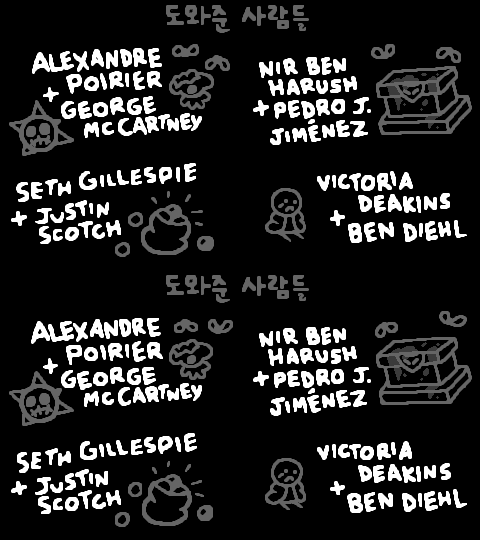 도와준 사람들
ALEXANDRE
POIRIER
+ GEORGE
MCCARTNEY
NIR BEN
HARUSH
+ PEDRO J.
JIMÉNEZ
SETH GILLESPIE
+ JUSTIN
SCOTCH
VICTORIA
DEAKINS
+ BEN DIEHL
도와준 사람들
ALEXANDRE
POIRIER
+ GEORGE
MCCARTNEY
NIR BEN
HARUSH
+ PEDRO J.
JIMÉNEZ
SETH GILLESPIE
+ JUSTIN
SCOTCH
VICTORIA
DEAKINS
+ BEN DIEHL